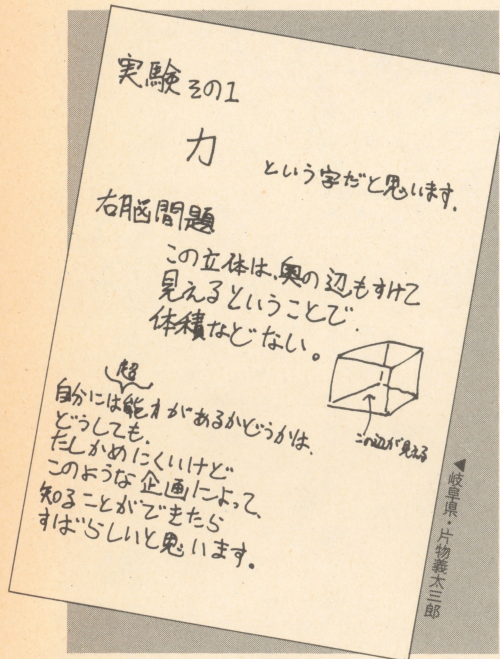 実験その1
力 という字だと思います.
右脳問題
この立体は、奥の辺もすけて
見えるということで.
体積などない。
この辺が見える
超
自分には能力があるかどうかは、
どうしても、
たしかめにくいけど
このような企画によって、
知ることができたら
すばらしいと思います。
◀岐阜県・片物義太三郎